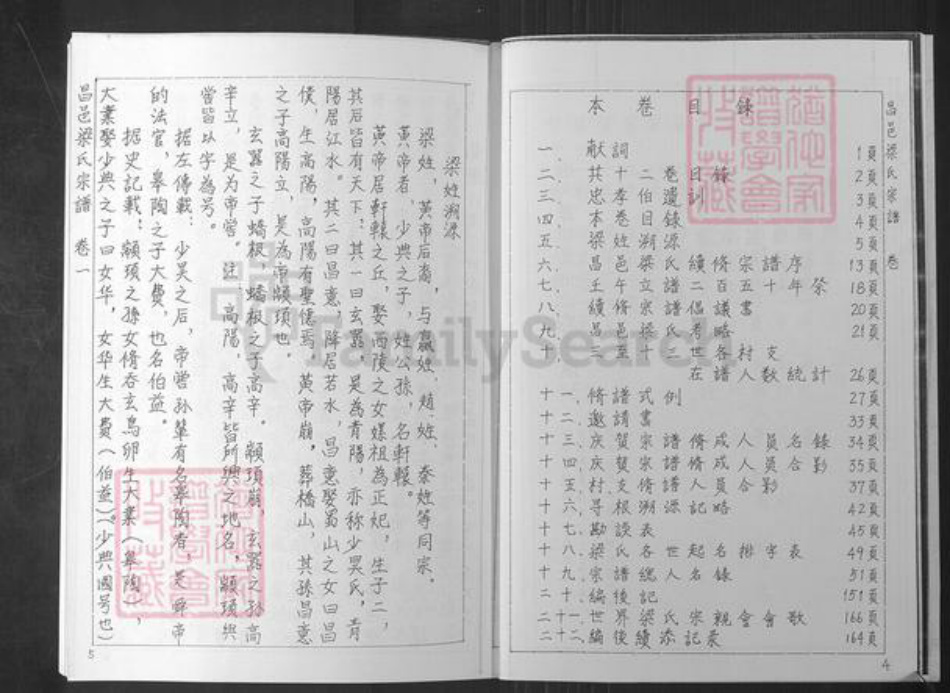 昌邑梁氏宗譜 卷
本卷目錄
一、献詞 1頁
二、共十卷目錄 2頁
三、忠孝二伯遺訓 3頁
四、本卷目錄 4頁
五、梁姓溯源 5頁
六、昌邑梁氏續修宗譜序 13頁
七、壬午修宗譜二百五十年祭 18頁
八、續修立譜倡議書 20頁
九、昌邑梁氏考略 21頁
十、三至十三世各村支
在譜人数統計 26頁
十一、脩譜式例 27頁
十二、邀請書 33頁
十三、庆贺宗譜脩成人員名錄 34頁
十四、庆贺宗譜脩成人員合影 35頁
十五、村支脩譜人員合影 37頁
十六、寻根溯源記略 42頁
十七、勘誤表 45頁
十八、梁氏各世起名排字表 49頁
十九、宗譜總人名錄 51頁
二十、編後記 151頁
二十一、世界梁氏宗親會會歌 166頁
二十二、編後續添記录 164頁
4
梁姓溯源
梁姓，黄帝后裔，与嬴姓、趙姓、秦姓等同宗。
黄帝者，少典之子，姓公孫，名軒轅。
黄帝居軒轅之丘，娶西陵之女嫘祖為正妃，生子二，
其后皆有天下：其一曰玄嚣，是為青陽，亦称少昊氏，青
陽居江水。其二曰昌意，降居若水，昌意娶蜀山之女曰昌
僕，生高陽，高陽有聖德焉。黄帝崩，葬橋山，其孫昌意
之子高陽立，是為帝顓頊也。
玄嚣之子蟜极，蟜极之子高辛。顓頊崩，玄嚣之孫高
辛立，是为帝喾。注：高陽、高辛皆所興之地名，顓頊與
喾皆以字為号。
据左傳載：少昊之后，帝喾孫輩有名皋陶者，是舜帝
的法官，皋陶之子大費，也名伯益。
据史記載：顓頊之孫女脩吞玄鳥卵生大業（皋陶），
大業娶少典之子曰女华，女华生大費（伯益）。（少典國号也）
昌邑梁氏宗譜 卷一
5
FamilySearch